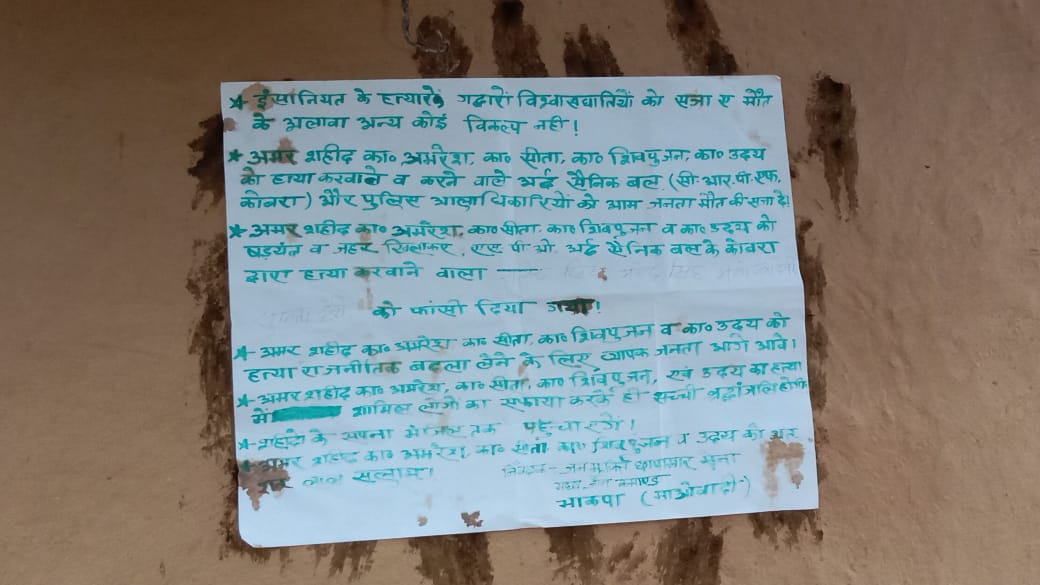 ★ इंसानियत के हत्यारों गद्दारों विश्वासघातियों को सजा ए मौत
के अलावा अन्य कोई विकल्प नहीं!
★ अमर शहीद का० अमरेश, का० सीता, का० शिवपुजन, का० उदय
को हत्या करवाले व करने वाले अर्द्ध सैनिक बल (सी.आर.पी.एफ,
कोबरा) और पुलिस आलाधिकारियों को आम जनता मौत की सजा दें!
★ अमर शहीद का० अमरेश, का० सीता, का० शिवपुजन व का० उदय को
षड्यंत्र व जहर खिलाकर, एस पी ओ अर्द्ध सैनिक बल के कोबरा
द्वारा हत्या करवाने वाला
को फांसी दिया गया!
★ अमर शहीद का० अमरेश, का० सीता, का० शिवपुजन व का० उदय को
हत्या राजनीतिक बदला लेने के लिए व्यापक जनता आगे आवें।
★ अमर शहीद का० अमरेश, का० सीता, का० शिवपुजन, एवं उदय का हत्या
में शामिल लोगों का सफाया करके ही सच्ची श्रद्धांजलि होगी
★ शहीदों के सपना मंजिल तक पहुंचाएंगे।
★ अमर शहीद का० अमरेश, का० सीता, का० शिवपुजन व उदय को
लाल सलाम।
निवेदक - जनमुक्ति छापामार सेना
भाकपा (माओवादी)